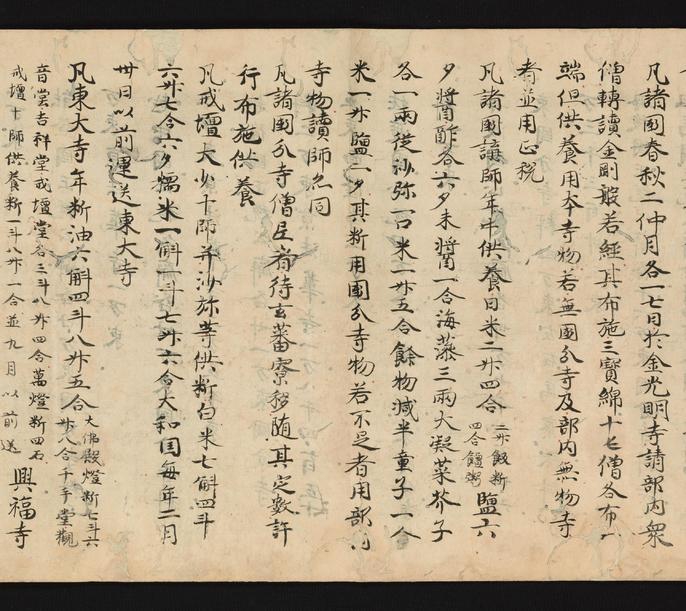 凡諸國春秋二仲月各一七日於金光明寺請部内衆
僧轉讀金剛般若經其布施三寳綿十屯僧各布一
端但供養用本寺物若無國分寺及部内無物寺
者並用正税
凡諸國講師年中供養日米二升四合 二升飯料四合饘粥 鹽六
夕醬酢各六夕未醬一合海藻三兩大凝菜芥子
各一兩從沙弥一口米一升五合餘物減半童子一合
米一升鹽一夕其料用國分寺物若不足者用部内
寺物讀師亦同
凡諸國分寺僧尼者待玄蕃寮移随其定數許
行布施供養
凡戒壇大少十師并沙弥等供料白米七斛四斗
六升七合六夕糯米一斛一斗七升六合大和国毎年二月
卅日以前運送東大寺
凡東大寺年料油六斛四斗八升五合 大佛殿燈料七斗六升八合千手堂觀
音堂吉祥堂戒壇堂各三斗八升四合萬燈料四石
戒壇十師供養料一斗八升一合並九月以前送 興福寺